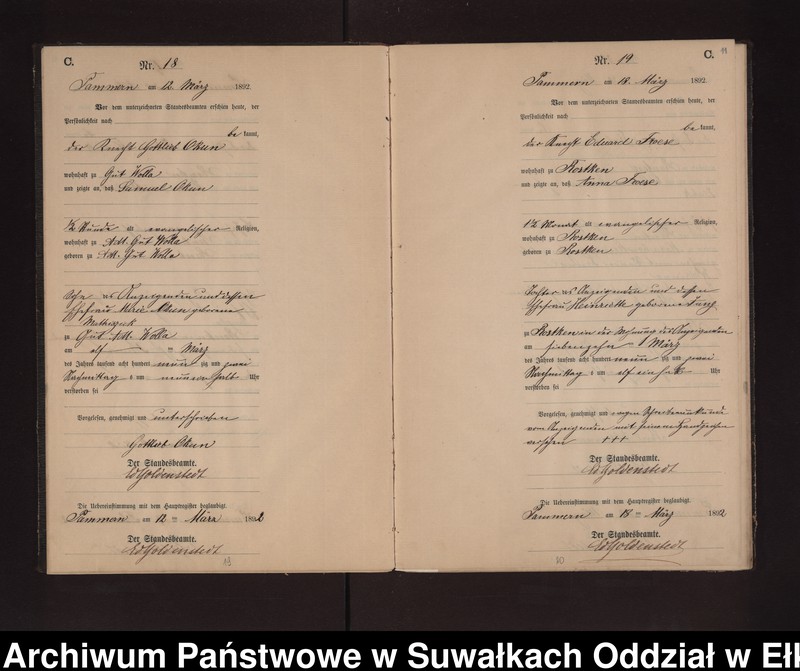 C.
Nr. 18
Tammern am 12. März 1892.
Vor dem unterzeichneten Standesbeamten erschien heute, der
Persönlichkeit nach
be kannt,
der Knecht Gottlieb Okun
wohnhaft zu Gut Wolla
und zeigte an, daß Samuel Okun
1/2 Stunde alt evangelischer Religion,
wohnhaft zu Adl. Gut Wolla
geboren zu Adl. Gut Wolla
Sohn des Anzeigenden und dessen
Ehefrau Okun geborene
zu Gut Adl. Wolla
am elf ten März
des Jahres tausend acht hundert neun zig und zwei
Nachmittag s um neun ein halb Uhr
verstorben sei
Vorgelesen, genehmigt und unterschrieben
Gottlieb Okun
Der Standesbeamte.
Goldenstedt
Die Uebereinstimmung mit dem Hauptregister beglaubigt.
Tammern am 12 ten März 1892
Der Standesbeamte.
Goldenstedt
C.
Nr. 19
Tammern am 18. März 1892
Vor dem unterzeichneten Standesbeamten erschien heute, der
Persönlichkeit nach
be kannt,
der Knecht Eduard
wohnhaft zu Rostken
und zeigte an, daß Anna
1 1/2 Monat alt evangelischer Religion,
wohnhaft zu Rostken
geboren zu Rostken
Tochter des Anzeigenden und dessen
Ehefrau Heinriette geborene
zu Rostken in der Wohnung des Anzeigenden
am siebenzehn ten März
des Jahres tausend acht hundert neun zig und zwei
Nachmittag s um elf ein halb Uhr
verstorben sei
Vorgelesen, genehmigt und wegen Schreibensunkunde
vom Anzeigenden mit seinem Handzeichen
versehen +++
Der Standesbeamte.
Goldenstedt
Die Uebereinstimmung mit dem Hauptregister beglaubigt.
Tammern am 18 ten März 1892
Der Standesbeamte.
Goldenstedt
Archiwum Państwowe w Suwałkach Oddział w Ełk